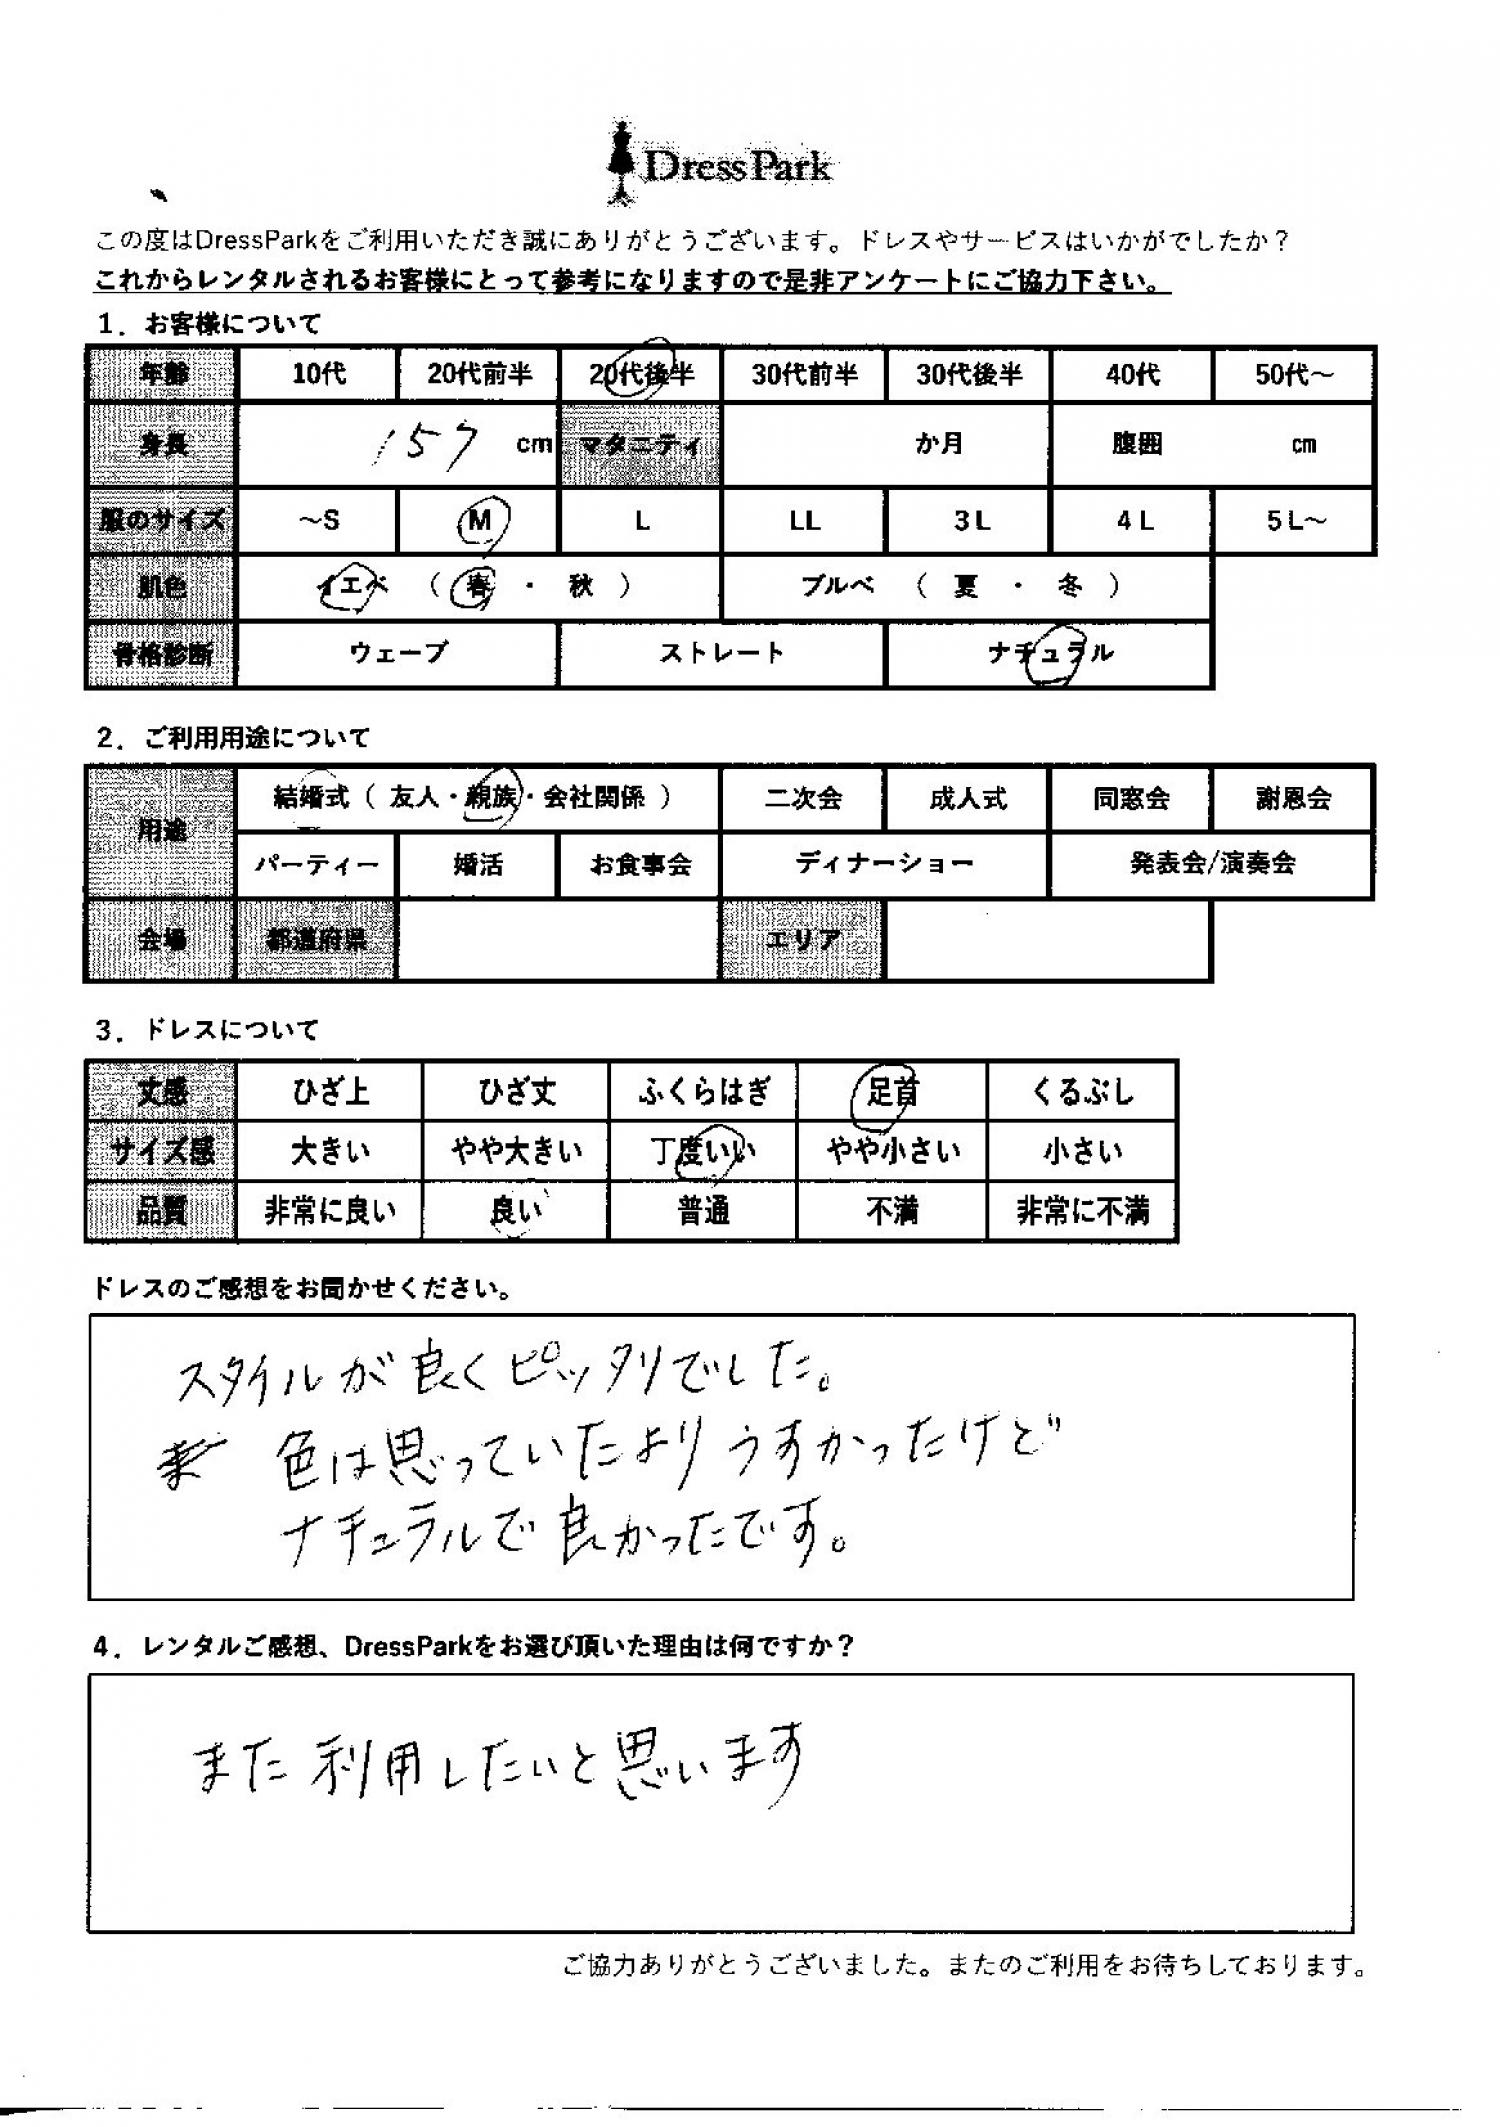 DressPark
この度はDressParkをご利用いただき誠にありがとうございます。ドレスやサービスはいかがでしたか？
これからレンタルされるお客様にとって参考になりますので是非アンケートにご協力下さい。
1．お客様について
年齢 10代 20代前半 20代後半 30代前半 30代後半 40代 50代～
身長 157 cm マタニティ か月 腹囲 cm
服のサイズ ～S M L LL 3L 4L 5L～
肌色 イエベ （ 春 ・ 秋 ） ブルベ （ 夏 ・ 冬 ）
骨格診断 ウェーブ ストレート ナチュラル
2．ご利用用途について
用途 結婚式（ 友人・親族・会社関係 ） 二次会 成人式 同窓会 謝恩会
パーティー 婚活 お食事会 ディナーショー 発表会/演奏会
会場 都道府県 エリア
3．ドレスについて
丈感 ひざ上 ひざ丈 ふくらはぎ 足首 くるぶし
サイズ感 大きい やや大きい 丁度いい やや小さい 小さい
品質 非常に良い 良い 普通 不満 非常に不満
ドレスのご感想をお聞かせください。
スタイルが良くピッタリでした。
色は思っていたよりうすかったけど
ナチュラルで良かったです。
4．レンタルご感想、DressParkをお選び頂いた理由は何ですか？
また利用したいと思います
ご協力ありがとうございました。またのご利用をお待ちしております。